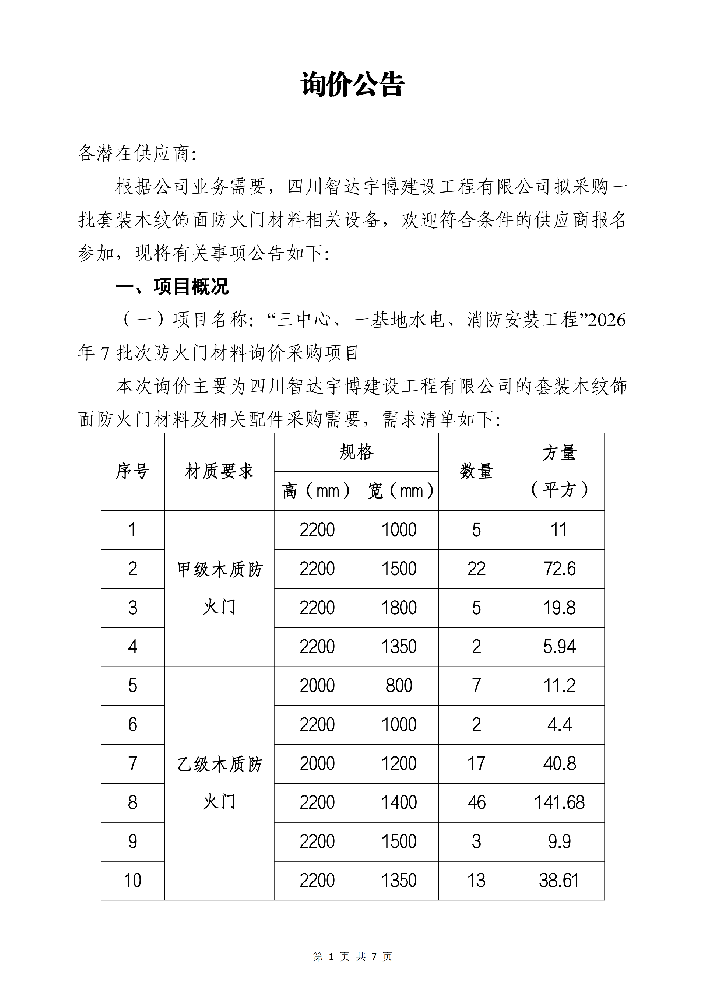 询价公告
各潜在供应商：
根据公司业务需要，四川智达宇博建设工程有限公司拟采购一
批套装木纹饰面防火门材料相关设备，欢迎符合条件的供应商报名
参加，现将有关事项公告如下：
一、项目概况
（一）项目名称：“三中心、一基地水电、消防安装工程”2026
年 7 批次防火门材料询价采购项目
本次询价主要为四川智达宇博建设工程有限公司的套装木纹饰
面防火门材料及相关配件采购需要，需求清单如下：
序号 材质要求 规格 数量 方量（平方）
高（mm） 宽（mm）
1 甲级木质防火门 2200 1000 5 11
2 2200 1500 22 72.6
3 2200 1800 5 19.8
4 2200 1350 2 5.94
5 乙级木质防火门 2000 800 7 11.2
6 2200 1000 2 4.4
7 2000 1200 17 40.8
8 2200 1400 46 141.68
9 2200 1500 3 9.9
10 2200 1350 13 38.61
第 1 页 共 7 页